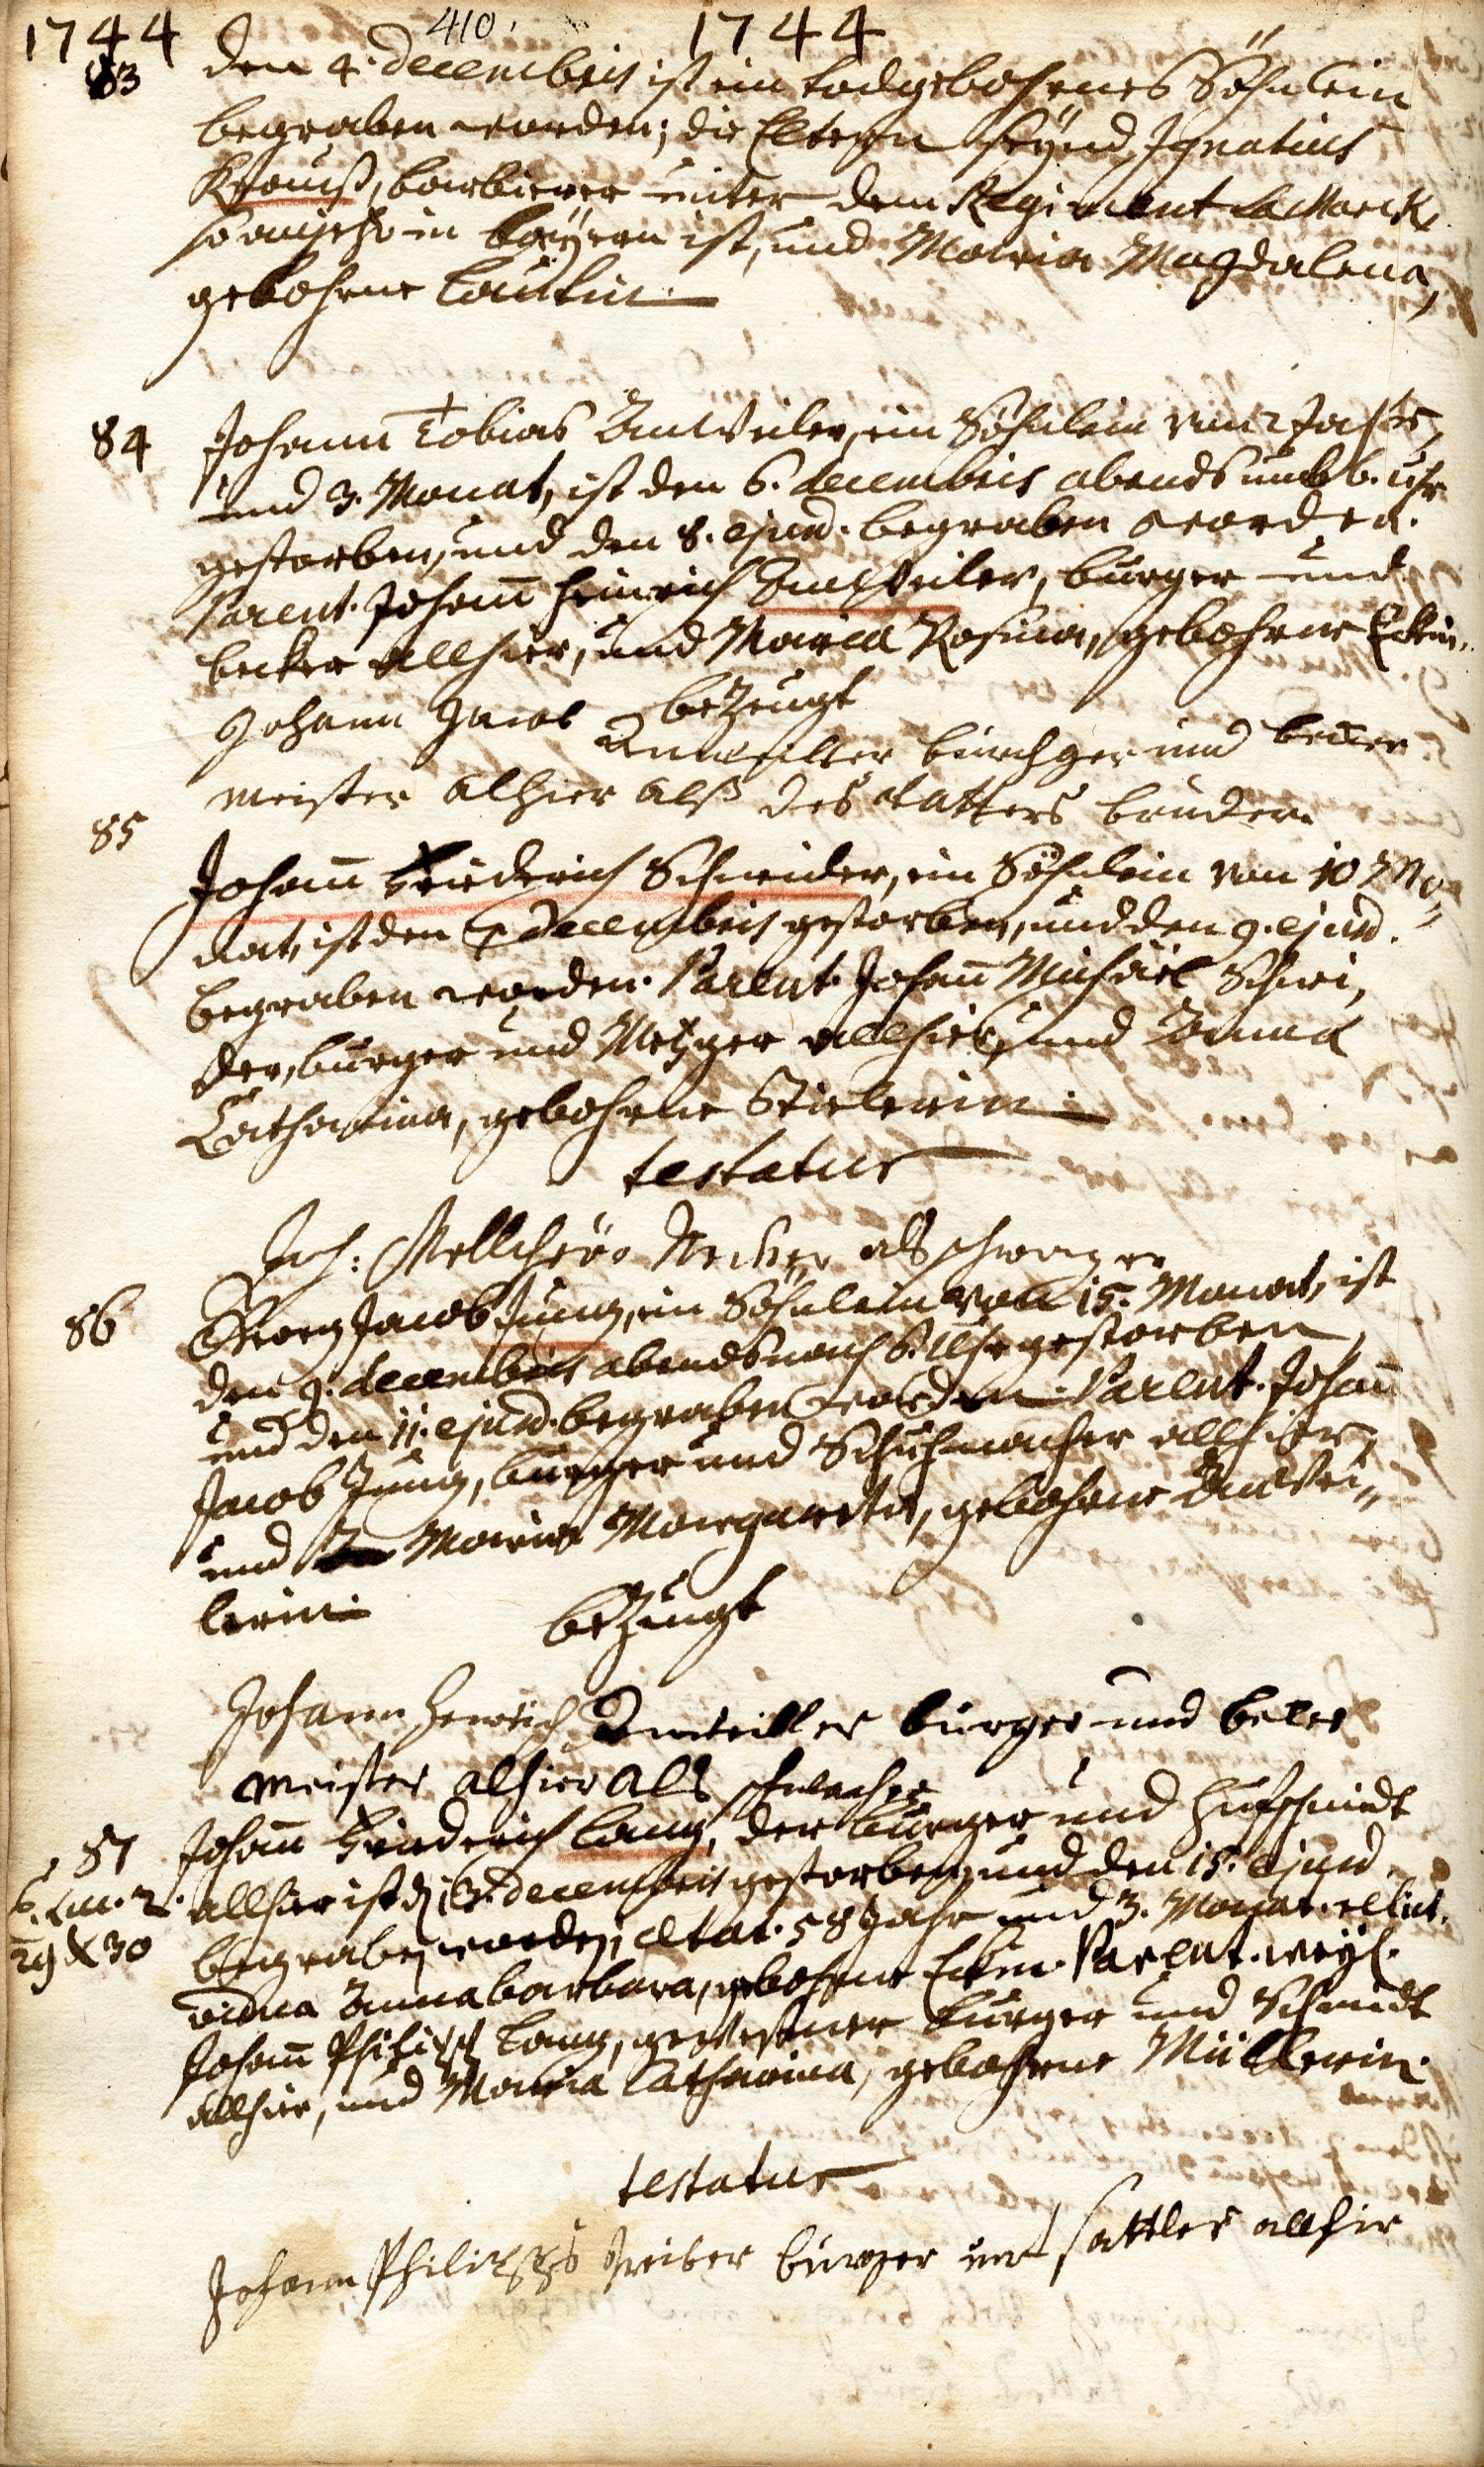 1744 410. 1744
83 den 4. decembris ist ein todgebohrnes Söhnlein
begraben worden; die Eltern seynd, Ignatius
Krauß, barbierer unter dem Regiment la Marck,
so anjetzo in bayern ist, und Maria Magdalena,
gebohrne
84 Johann Tobias Anweiler, ein Söhnlein von 2 Jahr,
und 3. Monat, ist den 6. decembris abends umb 6. uhr
gestorben, und den 8. ejusd. begraben worden.
Parent. Johann Heinrich Anweiler, burger und
becker allhier, und Maria Rosina, gebohrne Eckin.
bezeugt
Johann Jacob Anweiller burchger und becker
meister alhier alß des Vatters bruder
85
Johann Friederich Schneider, ein Söhnlein von 10 Mo„
nat, ist den 7 decembris gestorben, und den 9. ejusd.
begraben worden. Parent. Johann Michäel Schnei,
der, burger und Metzger allhier, und Anna
Catharina, gebohrne Stielerin.
testatur
Joh: Mellchior als schwager
86 Georg Jacob Jung, ein Söhnlein von 15. Monat, ist
den 9. decembris abends nach 6. Uhr gestorben,
und den 11. ejusd. begraben worden. Parent. Johann
Jacob Jung, burger und Schuhmacher allhier,
und Maria Margareta, gebohrne Anwei„
lerin.
bezeugt
Johann Henrich Anweiller burger und becker
meister alhier als schwacher
87 Johann Friederich Lang, der burger und Hufschmidt
allhier ist d. 13. decembris gestorben, und den 15. ejusd.
29 X 30 begraben worden, aetat. 58 Jahr und 3. Monat. relict.
vidua Anna barbara, gebohrne Eckin. Parent. weyl.
Johann Philipp Lang, gewesener burger und Schmidt
allhier, und Maria Catharina, gebohrne Müllerin.
testatur
Johann Philipps Treiber burger unt sattler allhir